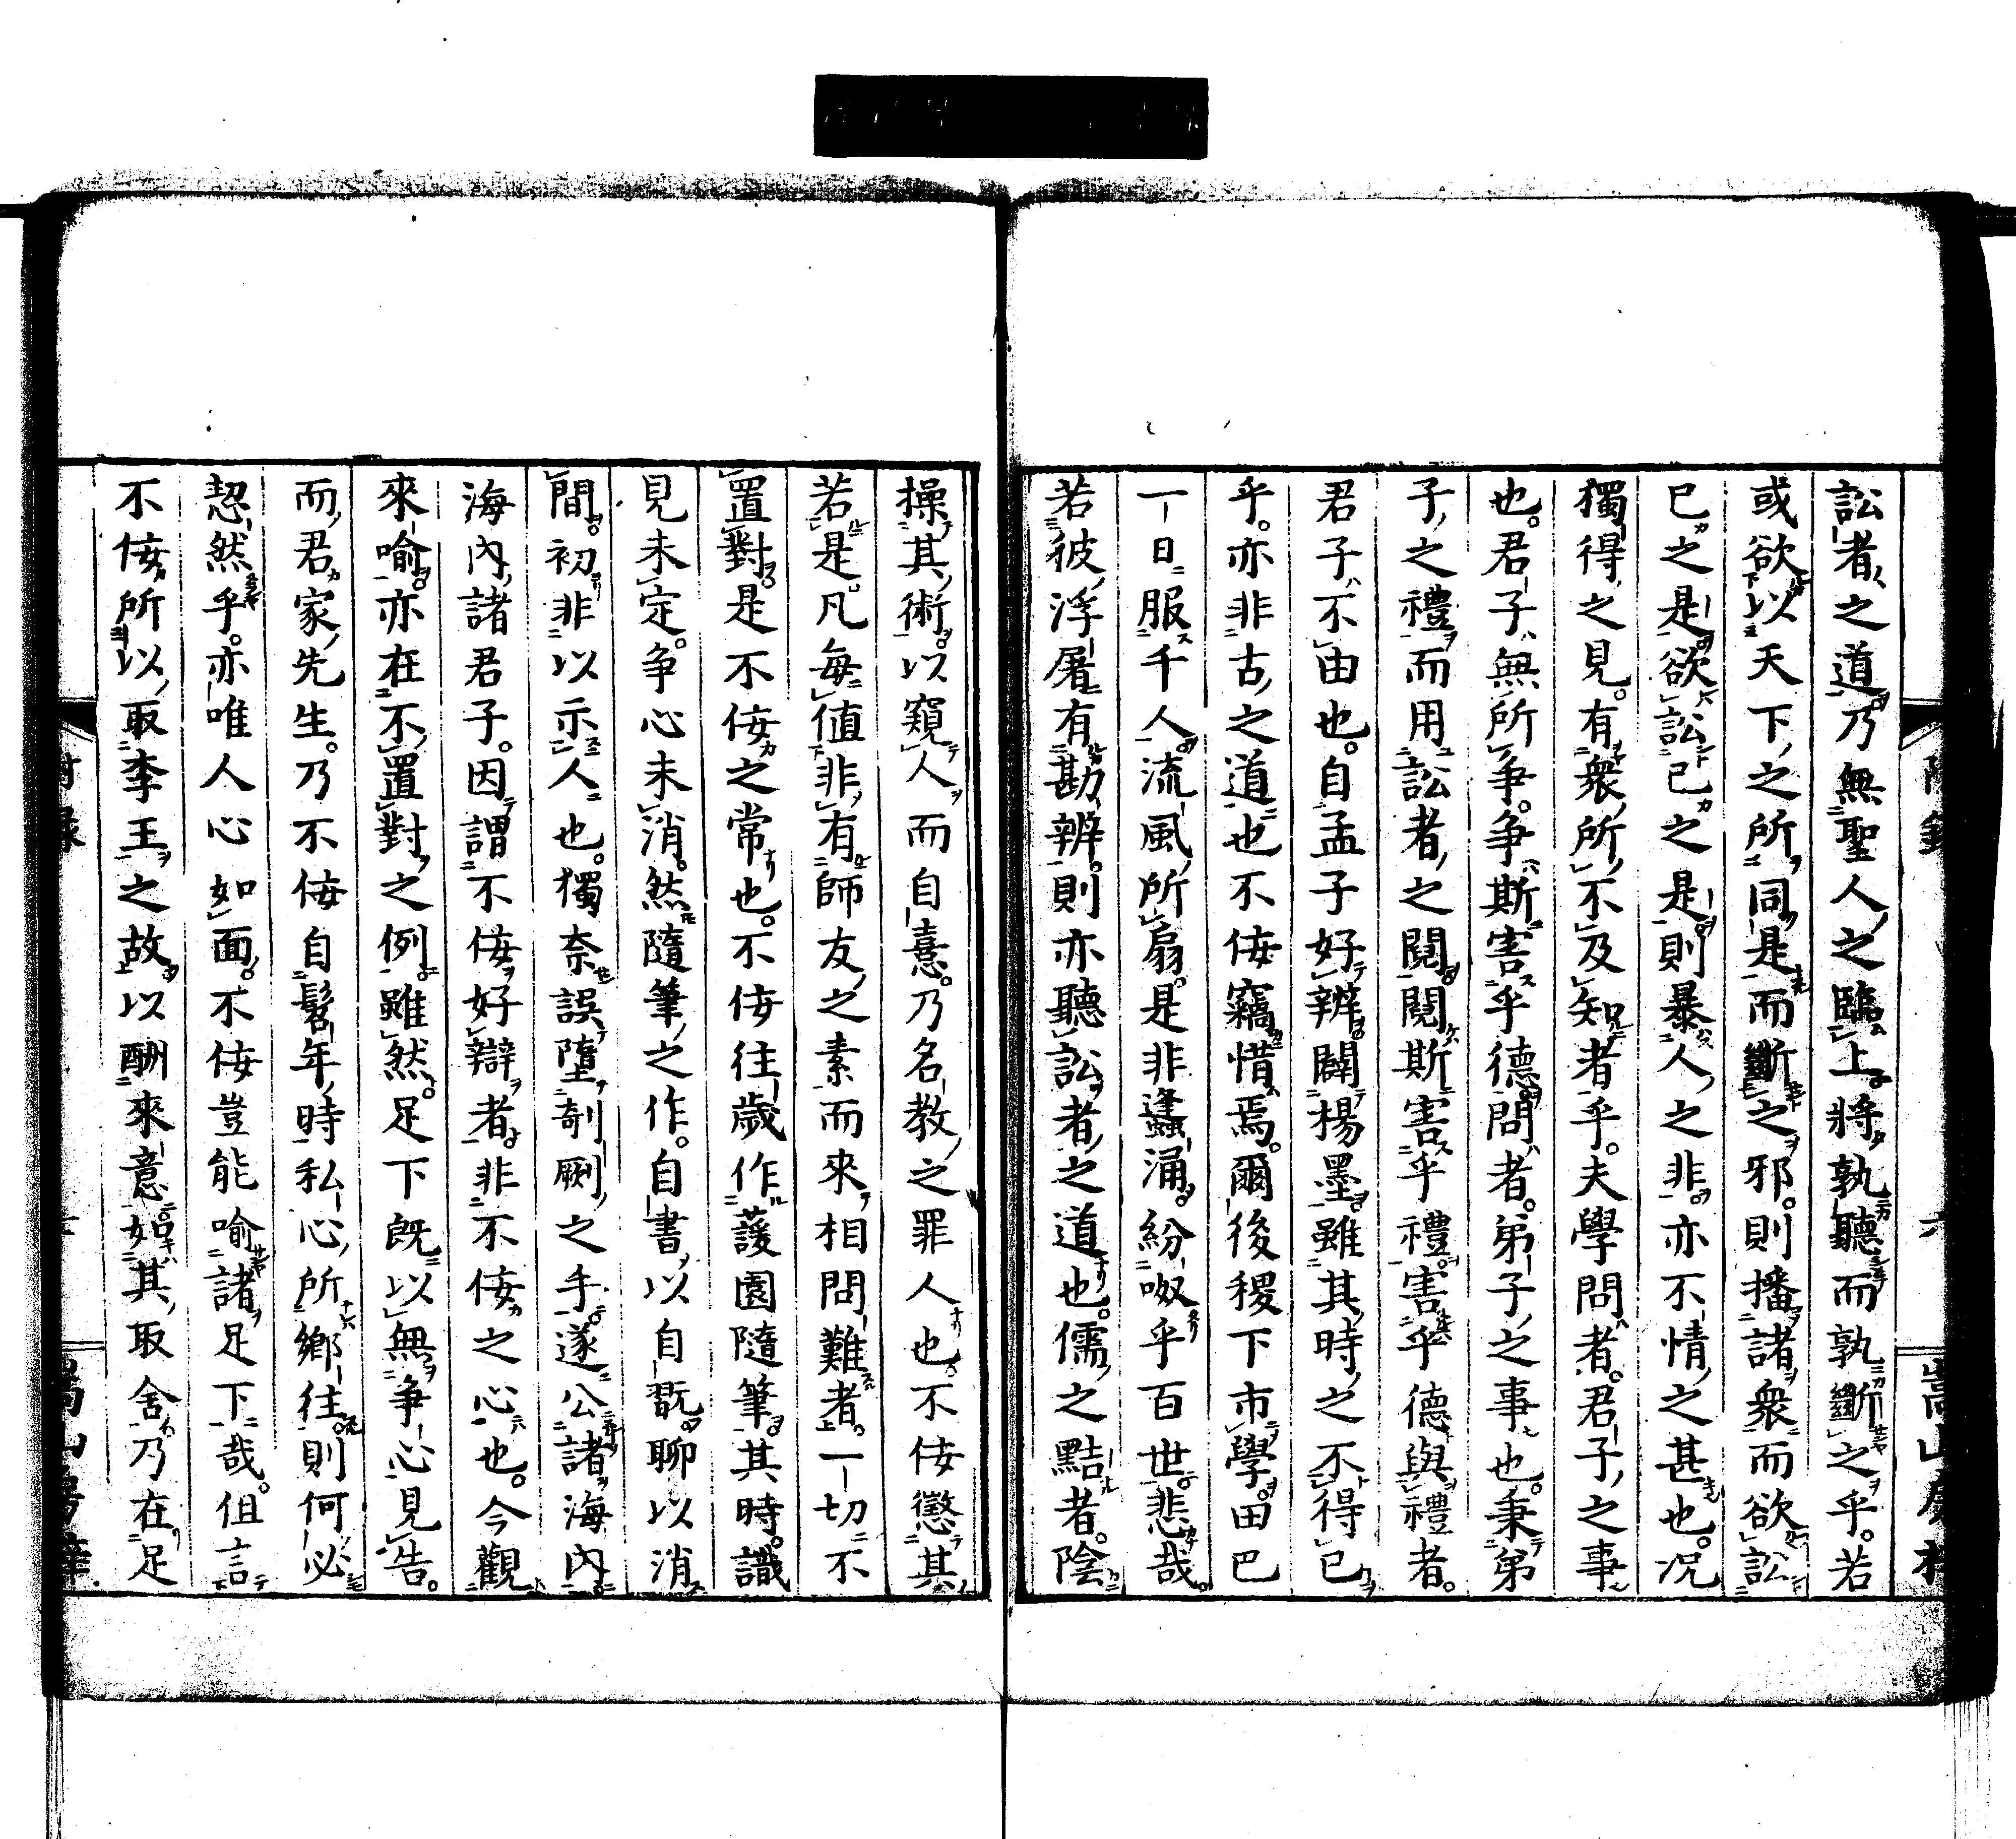 訟者之道乃無聖人之臨上將孰聽而孰斷之乎。若
或欲以天下之所同是而斷之邪。則播諸衆而欲訟
己之是欲訟己之是則暴人之非。亦不情之甚也。况
獨得之見。有衆所不及知者乎。夫學問者。君子之事
也。君子無所爭。爭斯害乎德問者。弟子之事也。秉弟
子之禮而用訟者之鬩鬩斯害乎禮。害乎德與禮者。
君子不由也。自孟子好辨闢楊墨雖其時之不得已
乎。亦非古之道也不佞竊惜焉。爾後稷下市學田巴
一日服千人流風所扇。是非蠭涌。紛呶乎百世。悲哉。
若彼浮屠有勘辨。則亦聽訟者之道也。儒之黠者。陰
操其術。以窺人而自憙。乃名教之罪人也。不佞懲其
若是。凡每值非有師友之素而來相問難者。一切不
置對。是不佞之常也。不佞往歲作蘐園隨筆。其時。識
見未定。爭心未消。然隨筆之作。自書以自翫。聊以消
間。初非以示人也。獨奈誤墮剞劂之手。遂公諸海內。
海內諸君子。因謂不佞好辯者。非不佞之心也。今觀
來喻。亦在不置對之例。雖然。足下既以無爭心見告。
而君家先生。乃不佞自髫年時私心所鄉往。則何必
恝然乎。亦唯人心如面。不佞豈能喻諸足下哉。但言
不佞所以取李王之故。以酬來意。如其取舍。乃在足
附錄
六
嵩山房梓